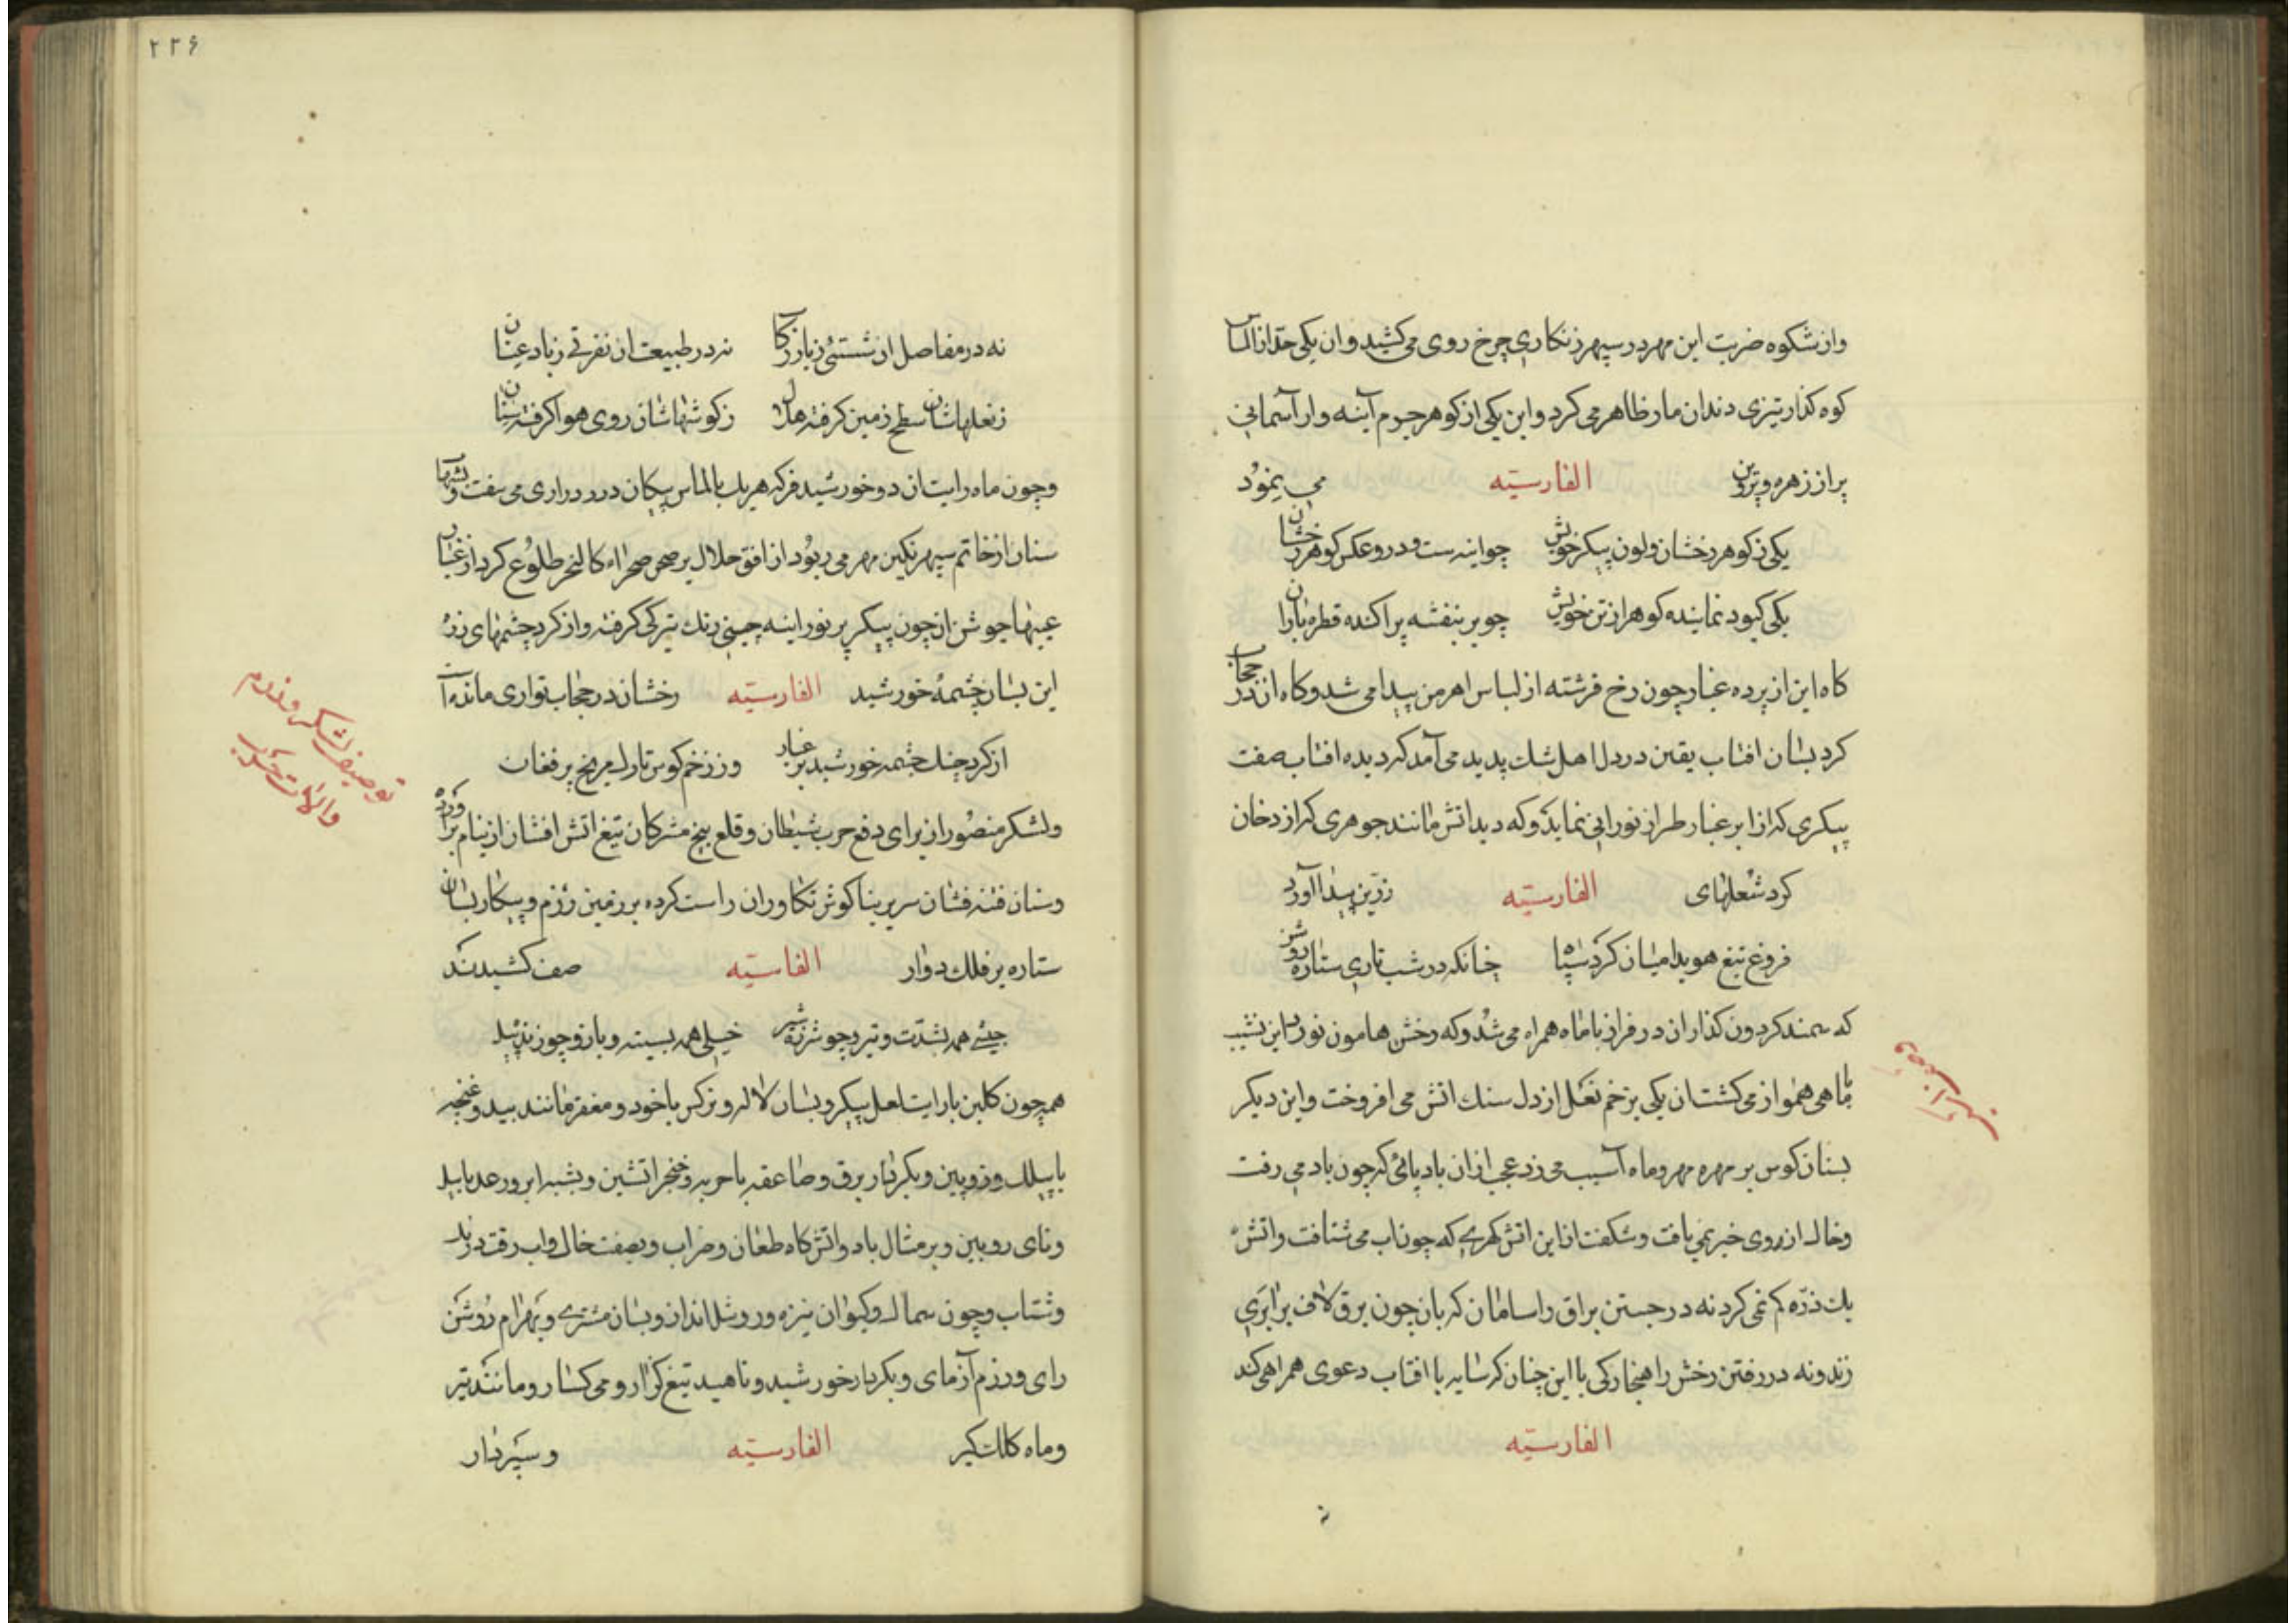 وازشکوه ضربت این مهر در سپهر زنکاری چرخ روی می کشید وان یکی حد از الماس
کوه کذار تیزی دندان مار ظاهر می کرد واین یکی از کوهر جرم آینه وار آسمانی
پر از زهره و پروین الفارسیّه می نمود
یکی ز کوهر رخشان ولون پیکر خویش چواینه ست ودرو عکس کوهر رخشان
یکی کبود نماینده کوهر از تن خویش چو بر بنفشه پراکنده قطره باران
کاه این از پرده غبار چون رخ فرشته از لباس اهرمن پیدا می شد وکاه ان در حجاب
کرد بسان افتاب یقین در دل اهل شك پدید می آمد که دیده افتاب صفت
پیکری که از ابر غبار طراز نورانی نماید وکه دید اتش مانند جوهری که از دخان
کرد شعلهای الفارسیّه زرّین پیدا آورد
فروغ تیغ هویدا میان کرد سپاه چنانکه در شب تاری ستاره روشن
که سمند کردون کذار ان در فراز با ماه همراه می شد وکه رخش هامون نورد این نشیب
با ماهی هم‌واز می کشت ان یکی بزخم نعل از دل سنك اتش می افروخت واین دیکر
بسنان کوس بر مهره مهر وماه آسیب می زد عجب ازان باد پائی که چون باد می رفت
وخاك از روی خبر نمی یافت وشکفت ازاین اتش کهری که چون اب می شتافت واتش
یك ذرّه کم نمی کرد نه در جستن براق را سامان که بان چون برق لاف برابری
زند ونه در رفتن رخش را هنجار کی با این چنان که سایه با افتاب دعوی همراهی کند
الفارسیّه
۲۲۶
نه در مفاصل ان سستئی ز بار رکاب نه در طبیعت ان نفرتی ز باد عنان
ز نعلهاشان سطح زمین کرفته هلال ز کوشهاشان روی هوا کرفته سنان
وچون ماه رایت ان دو خورشید فر که هر یك بالماس پیکان در دراری می سفت
سنان از خاتم سپهر نکین مهر می ربود از افق جلال بر صحن صحراء کالنجر طلوع کرد از غبار
عینها جوشن ازچون پیکر پر نور اینه چینی زنك تیرکی کرفته واز کرد چشمهای
این بسان چشمهٔ خورشید الفارسیّه رخشان در حجاب تواری مانده
از کرد جنك چشمه خورشید پر غبار وز زخم کوس تارك مریخ پر فغان
ولشکر منصور از برای دفع حرب شیطان وقلع بیخ مشرکان تیغ اتش افشان از نیام
وسنان فتنه فشان سر بر بناکوش تکاوران راست کرده بر زمین رزم وپیکار بسان
ستاره بر فلك دوار الفارسیّه صف کشیدند
جیشی همه بشدّت و تیر و چو شرزه شیر خیلی همه
همچون کلبن با رایت لعل پیکر وبسان لاله ونرکس با خود ومغفر مانند بید وغنچه
با پیلك وزوبین وبکردار برق وصاعقه با حربه وخنجر اتشین وبشبه ابر ورعد با پیل
ونای رویین وبر مثال باد واتش کاه طعان وضراب وبصفت خاك واب وقت درنك
وشتاب وچون سماك وکیوان نیزه ور وشل انداز وبسان مشتری وبهرام روشن
رای ورزم آزمای وبکردار خورشید وناهید تیغ کزار ومی کسار ومانند تیر
وماه کلك کیر الفارسیّه وسپردار
توصیف لشکر و
والات حرب